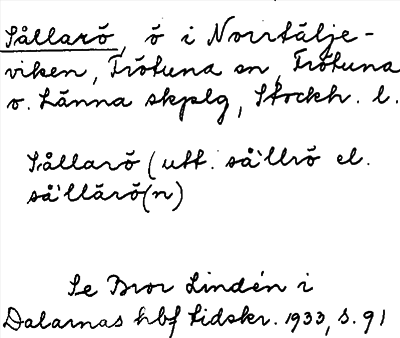 Sållarö, ö i Norrtälje-
viken, Frötuna sn, Frötuna
o. Länna skplg, Stockh. l.
Sållarö (utt. så`llrö el.
så`llårö(n)
Se Bror Lindén i
Dalarnas hbf tidskr. 1933, s. 91